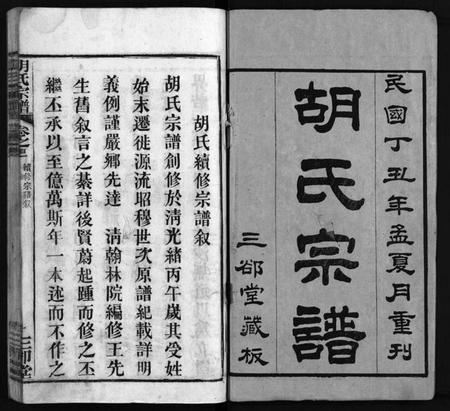 民國丁丑年孟夏月重刊
胡氏宗譜
三郤堂藏板
胡氏續修宗譜叙
胡氏宗譜創修於清光緒丙午歲其受姓
始末遷徙源流昭穆世次原譜紀載詳明
義例謹嚴鄉先達 清翰林院編修王先
生舊叙言之綦詳後賢蔚起踵而修之丕
繼丕承以至億萬斯年一本述而不作之
胡氏宗譜 卷之
續修宗譜叙